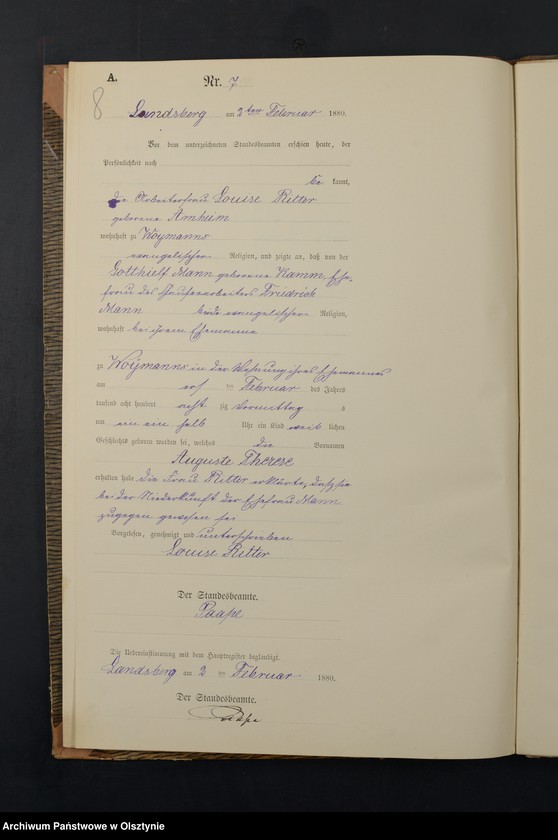 A.
Nr. 7
8
Landsberg am 2ten Februar 1880.
Vor dem unterzeichneten Standesbeamten erschien heute, der
Persönlichkeit nach
be kannt,
die Arbeiterfrau Louise Ritter
geborene Arnheim
wohnhaft zu Woymanns
evangelischer Religion, und zeigte an, daß von der
Gotthielf Mann geborene Hamm, Ehe-
frau des Friedrich
Mann beide evangelischer Religion,
wohnhaft bei ihrem Ehemanne
zu Woymanns in der Wohnung ihres Ehemannes
am ten Februar des Jahres
tausend acht hundert acht zig Vormittag s
um ein halb Uhr ein Kind weib lichen
Geschlechts geboren worden sei, welches die Vornamen
Auguste Therese
erhalten habe die Frau Ritter erklärte, daß sie
bei der Niederkunft der Ehefrau Mann
zugegen gewesen sei
Vorgelesen, genehmigt und unterschrieben
Louise Ritter
Der Standesbeamte.
Paape
Die Uebereinstimmung mit dem Hauptregister beglaubigt.
Landsberg am 2 ten Februar 1880.
Der Standesbeamte.
Paape
Archiwum Państwowe w Olsztynie